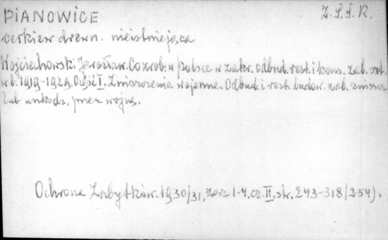 PIANOWICE Z.S.S.R.
cerkiew drewn. nieistniejąca
Wojciechowski Jarosław. Co zrobiono w Polsce w zakr. odbud. rest. i kons. zab. szt.
w l. 1919-1929. Część I. Zniszczenia wojenne. Odbud. i rest. budow. zab. zniszcz.
lub uszkodz. przez wojnę.
Ochrona Zabytków. 1930/31, zesz. 1-4, cz. II, str. 243-318 (254).